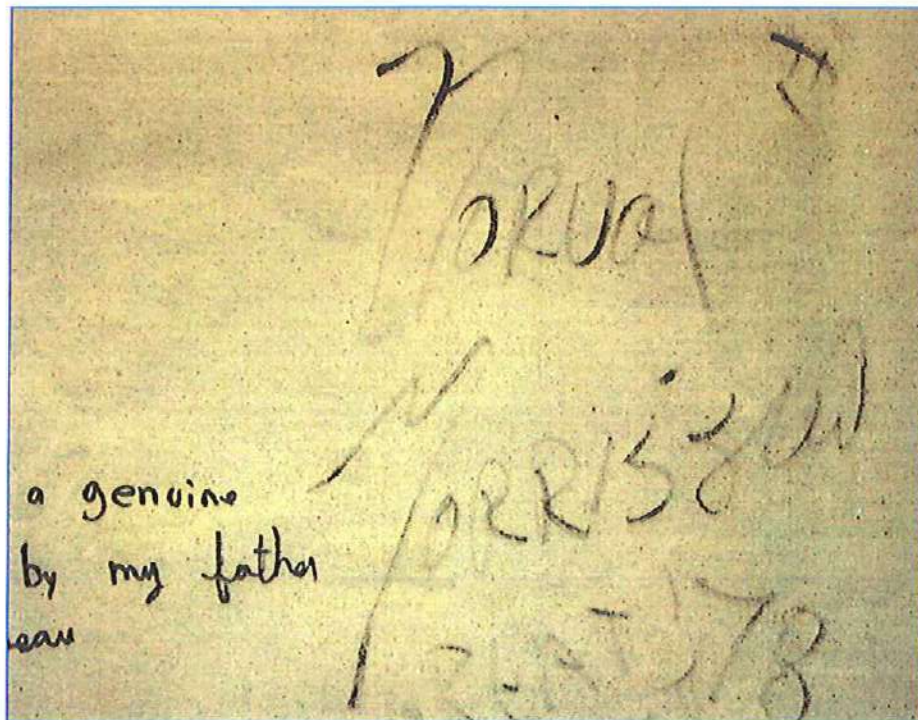 Norval
Morrisseau
a genuine
by my father
eau
'78